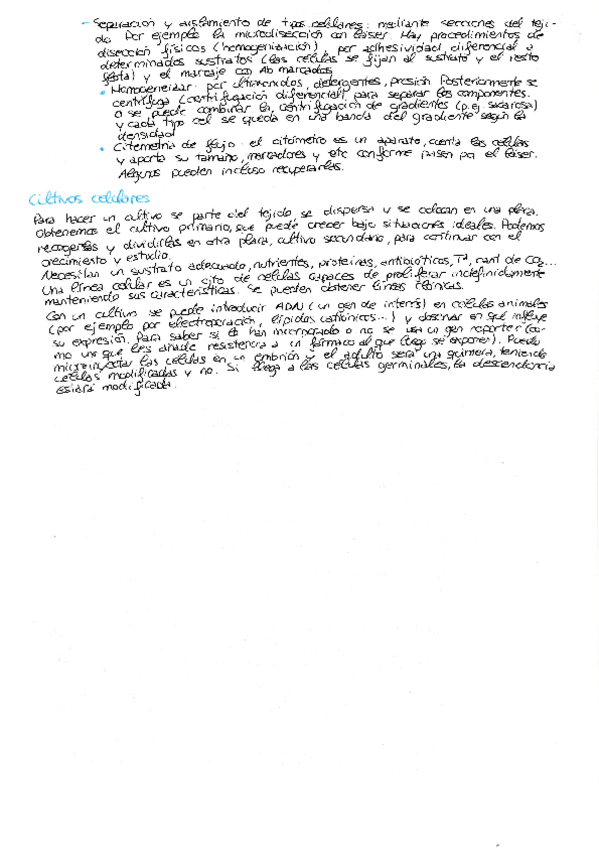 - Separación y aislamiento de tipos celulares: mediante secciones del teji-
do. Por ejemplo la microdisección con láser. Hay procedimientos de
disección físicos (homogenización), por adhesividad diferencial a
determinados sustratos (las células se fijan al sustrato y el resto
flota) y el marcaje con Ab marcados
• Homogeneizar: por ultrasonidos, detergentes, presión Posteriormente se
centrifuga (centrifugación diferencial) para separar los componentes.
o se puede combinar la centrifugación de gradientes (p.ej. sacarosa)
y cada tipo cel se queda en una banda del gradiente según la
densidad
• Citometría de flujo: el citómetro es un aparato, cuenta las células
y aporta su tamaño, marcadores y etc conforme pasen por el láser.
Algunos pueden incluso recuperarlas.
Cultivos celulares
Para hacer un cultivo se parte del tejido, se dispersa y se colocan en una placa.
Obtenemos el cultivo primario, que puede crecer bajo situaciones ideales. Podemos
recogerlas y dividirlas en otra placa, cultivo secundario, para continuar con el
crecimiento y estudio.
Necesitan un sustrato adecuado, nutrientes, proteínas, antibióticos, Tª, cant de CO2...
Una línea celular es un cjto de células capaces de proliferar indefinidamente
manteniendo sus características. Se pueden obtener líneas clónicas.
Con un cultivo se puede introducir ADN (un gen de interés) en células animales
(por ejemplo por electroporación, lípidos catiónicos...) y observar en qué influye
su expresión. Para saber si se han incorporado o no se usa un gen reporter (co-
mo uno que les añade resistencia a un fármaco al que luego se exponen). Puedo
microinyectar las células en un embrión y el adulto será una quimera, teniendo
células modificadas y no. Si llega a las células germinales, la descendencia
estará modificada.